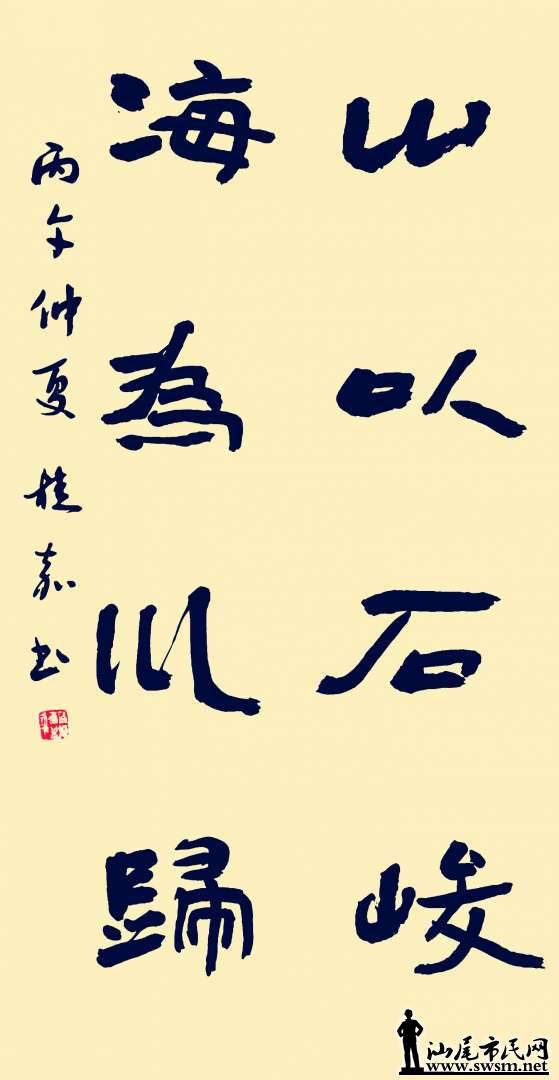 山以石峻
海為川歸
丙午仲夏 桂嘉书
汕尾市民网
www.swsm.net